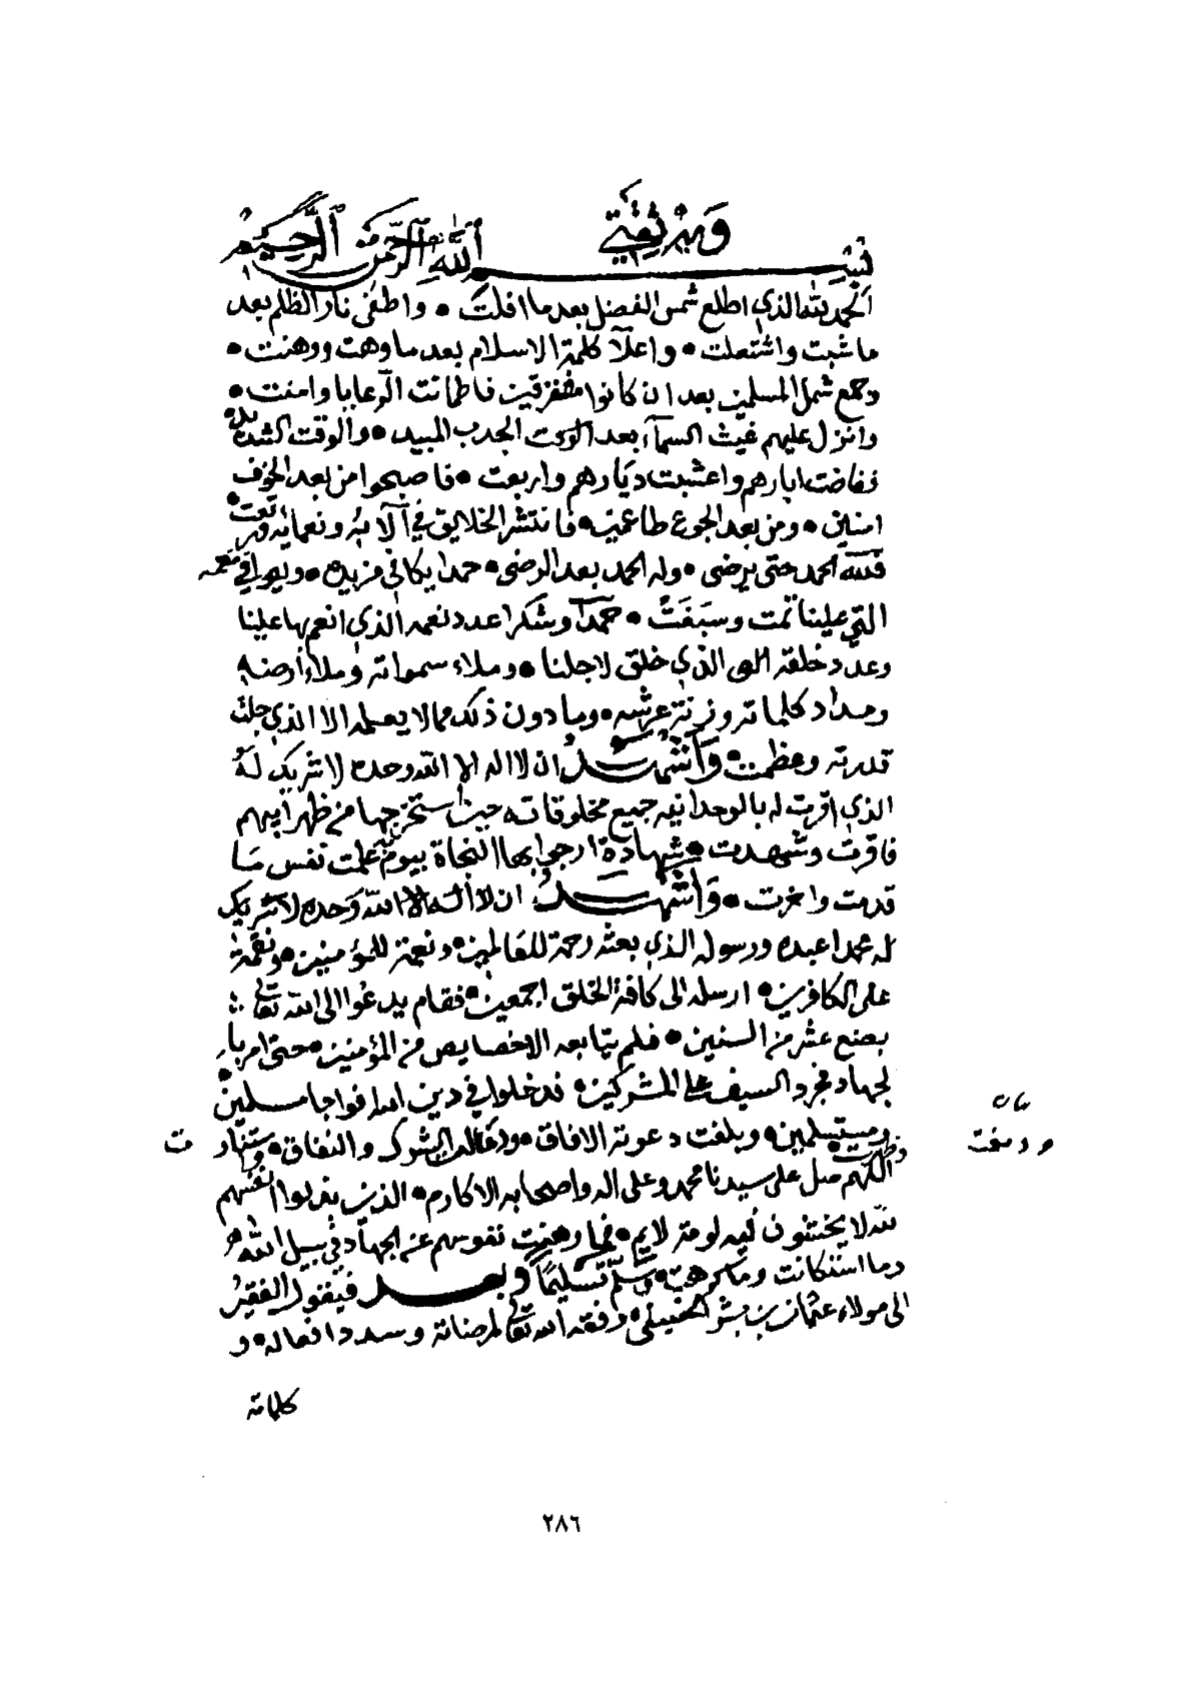 وبه ثقتي
بسم الله الرحمن الرحيم
الحمد لله الذي اطلع شمس الفضل بعد ما افلت • واطفى نار الظلم بعد
ما شبت واشتعلت • واعلا كلمة الاسلام بعد ما وهت ووهنت •
وجمع شمل المسلمين بعد ان كانوا مفترقين فاطمانت الرعايا وامنت •
وانزل عليهم غيث السمآء بعد الوقت الجدب المبيد • والوقت الشديد •
ففاضت ابارهم واعشبت ديارهم واربعت • فاصبحوا من بعد الخوف
امنين • ومن بعد الجوع طاعمين • فانتشر الخلايق في آلآئه ونعمائه ورتعت •
فلله الحمد حتى يرضى • وله الحمد بعد الرضى • حمدا يكافي مزيده • ويوافي نعمه
التي علينا تمت وسبغت • حمدآ وشكرا عدد نعمه الذي انعم بها علينا
وعدد خلقه الذي خلق لاجلنا • وملاء سمواته وملاء أرضه
ومداد كلماته وزنة عرشه • وما دون ذلك مما لا يعلمه الا الذي جلت
قدرته وعظمت • وأشهد ان لا اله الا الله وحده لا شريك له
الذي اقرت له بالوحدانيه جميع مخلوقاته حين استخرجها من ظهر ابيهم
فاقرت وشهدت • شهادة ارجوا بها النجاة يوم علمت نفس ما
قدمت واخرت • وأشهد ان لا اله الا الله وحده لا شريك
له محمدا عبده ورسوله الذي بعثه رحمة للعالمين • ونعمة للمؤمنين • ونقمة
على الكافرين • ارسله الى كافة الخلق اجمعين • فقام يدعوا الى الله تعالى
بضع عشر من السنين • فلم يتابعه الا خصايص من المؤمنين • حتى امر با
لجهاد فجرد السيف على المشركين • فدخلوا في دين الله افواجا مسلمين
ومستسلمين • وبلغت دعوته الافاق • الشرك والنفاق •
اللهم صل على سيدنا محمد وعلى اله واصحابه الاكارم • الذين بذلوا انفسهم
لله لا يخشون فيه لومة لايم • فما وهنت نفوسهم عن الجهاد في سبيل الله
وما استكانت وما كرهت • وسلم تسليمآ وبعد فيقول الفقير
الى مولاه عثمان بن بشر الحنبلي • وفقه الله تعالى لمرضاته وسدد افعاله • و
كلماته
٢٨٦